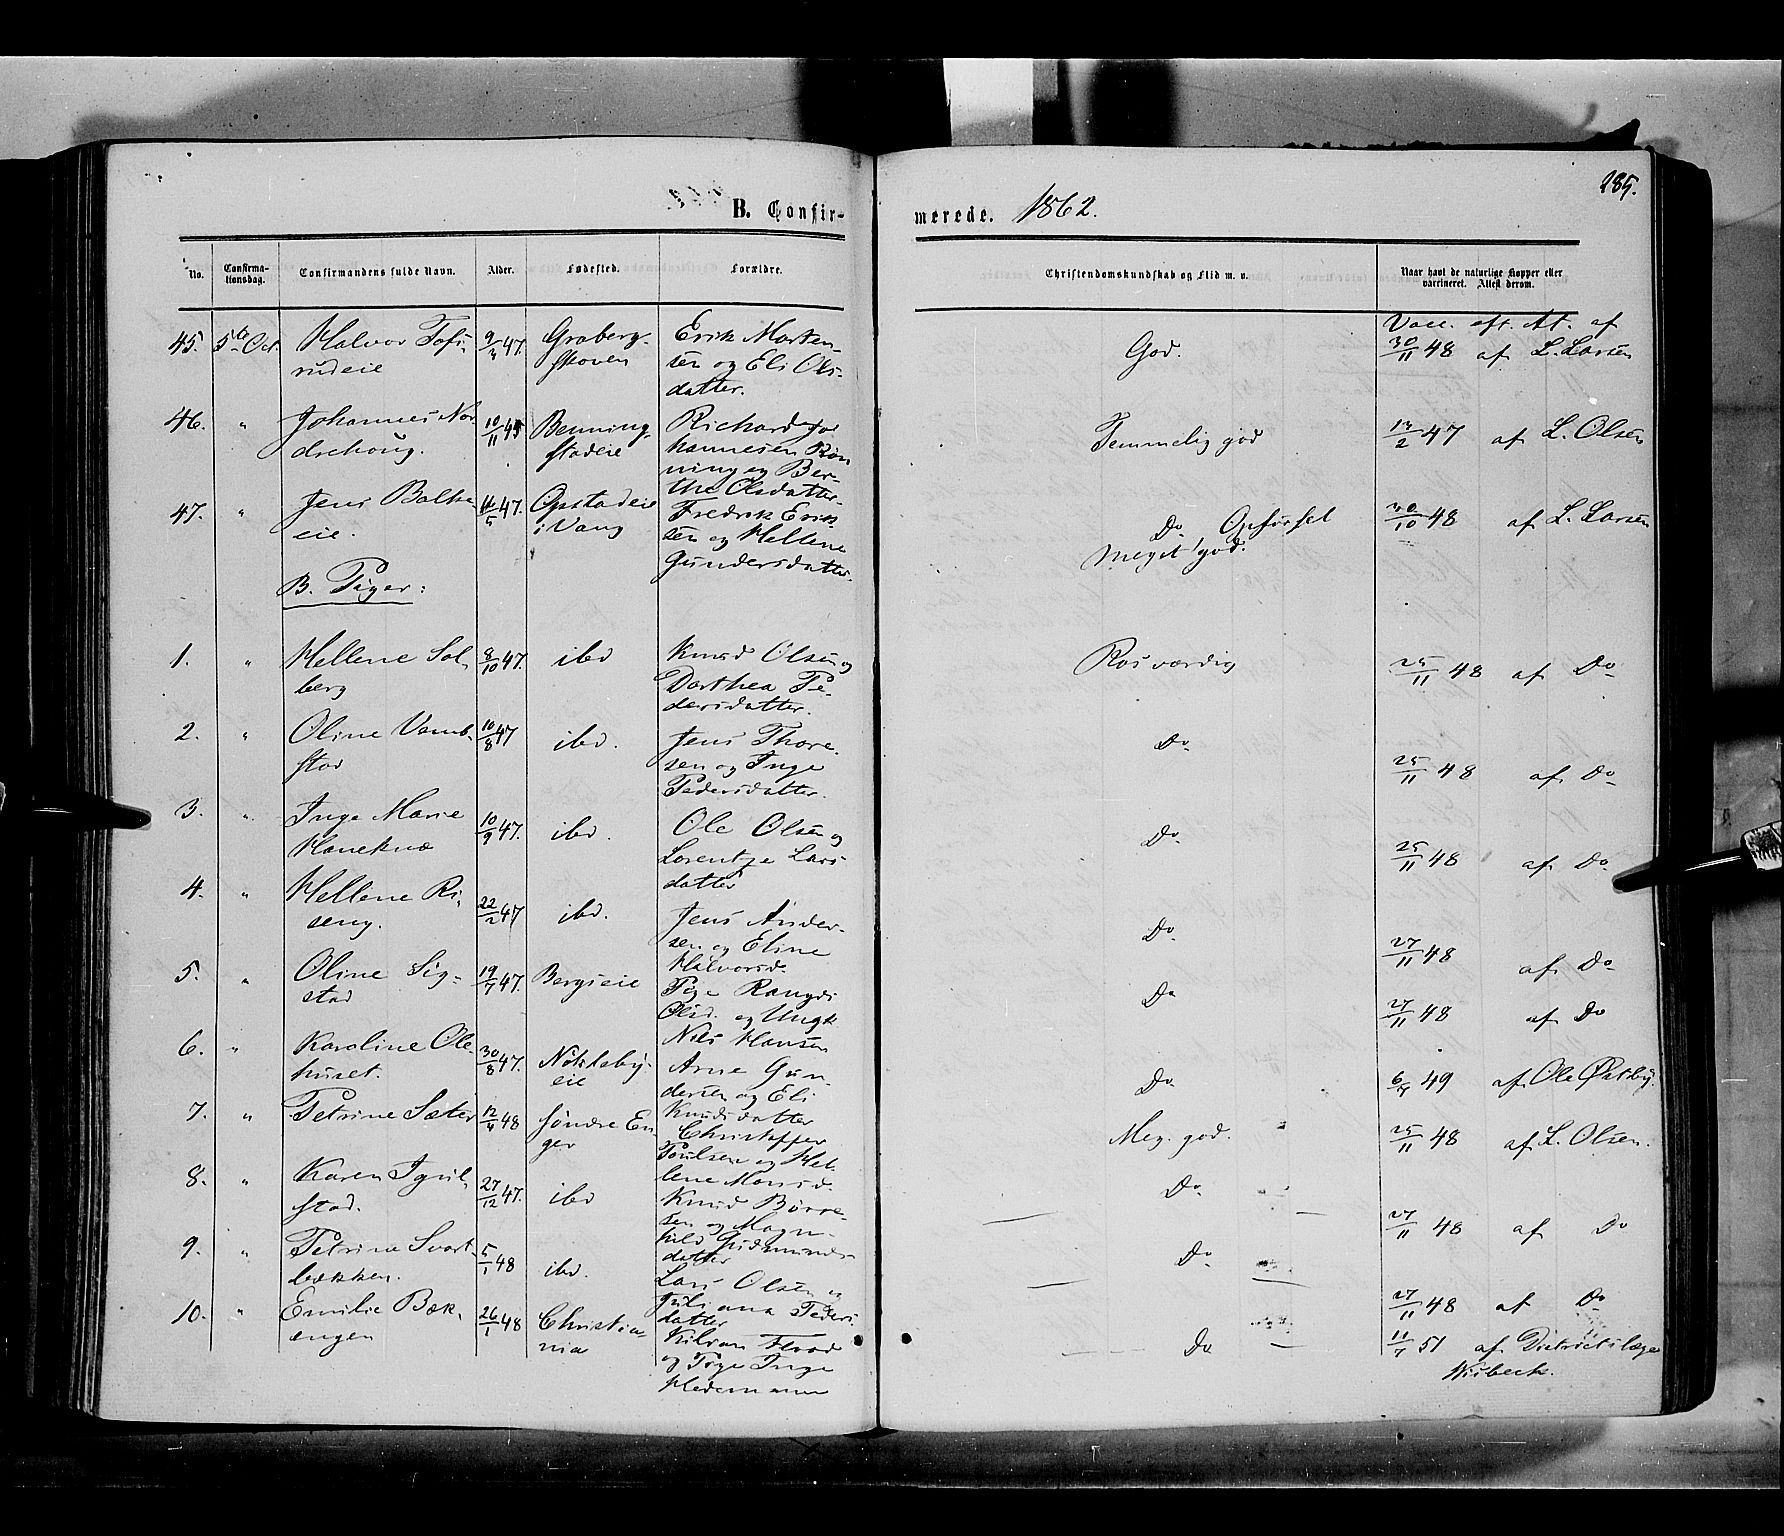 285.
B. Confir-
merede. 1862.
No.
Confirma-
tionsdag.
Confirmandens fulde Navn.
Alder.
Fødested.
Forældre.
Christendomskundskab og Flid m. v.
Naar havt de naturlige Kopper eller
vaccineret. Attest derom.
45. 5te Oct. Halvor Tofs-
rudeie
9/3 47.
Graberg-
skoven
Erik Morten-
sen og Eli Ols-
datter.
God.
Vacc. eft. At. af
30/11 48 af L. Larsen
46. " Johannes Nor-
drehoug.
10/11 45
Benning-
stadeie
Richard Jo
hannesen Røn
ning og Ber-
the Olsdatter
Temmelig god
14/2 47 af L. Olsen
47. " Jens Balke-
eie.
16/5 47.
Opstadeie
i Vang
Fredrik Erik
sen og Hellene
Gundersdatter.
Do Opførsel
meget god.
30/10 48 af L. Larsen
B. Piger:
1. " Hellene Sol-
berg
8/10 47.
ibd
Knud Olsen og
Dorthea Pe-
dersdatter.
Rosværdig
25/11 48 af Do
2. " Oline Vemb-
stad
10/8 47
ibd.
Jens Thore-
sen og Inge
Pedersdatter.
Do
25/11 48 af Do
3. " Inge Marie
Haneknæ
10/9 47.
ibd.
Ole Olsen og
Lorentze Lars
datter
Do
25/11 48 af Do
4. " Hellene Ri-
seng.
22/2 47
ibd.
Jens Ander-
sen og Eline
Halvorsd.
Do
27/11 48 af Do
5. " Oline Sig-
stad
19/7 47.
Bergseie
Pige Rangdi
Olsd. og Ungk
Nils Hansen
Do
27/11 48 af Do
6. " Karoline Ole-
huset.
30/8 47.
Nøkleby-
eie
Arne Gun-
dersen og Eli
Knudsdatter
Do
6/4 49 af Ole Østby.
7. " Petrine Sæter
12/4 48
Søndre En-
ger
Christoffer
Poulsen og Hel-
lene Monsd.
Meg. god.
25/11 48 af L. Olsen.
8. " Karen Igvil-
stad.
27/12 47.
ibd
Knud Børre-
sen og Magn-
hild Gudmunds-
datter
Do
27/11 48 af Do
9. " Petrine Svart-
bækken.
5/1 48
ibd.
Lars Olsen og
Juliana Peders
datter
Do
27/11 48 af Do
10. " Emilie Bæk-
engen
26/1 48
Christia-
nia
Kilian Flood
og Pige Inge
Hedemann
Do
11/7 51 af Districtslæge
Nisbeck.